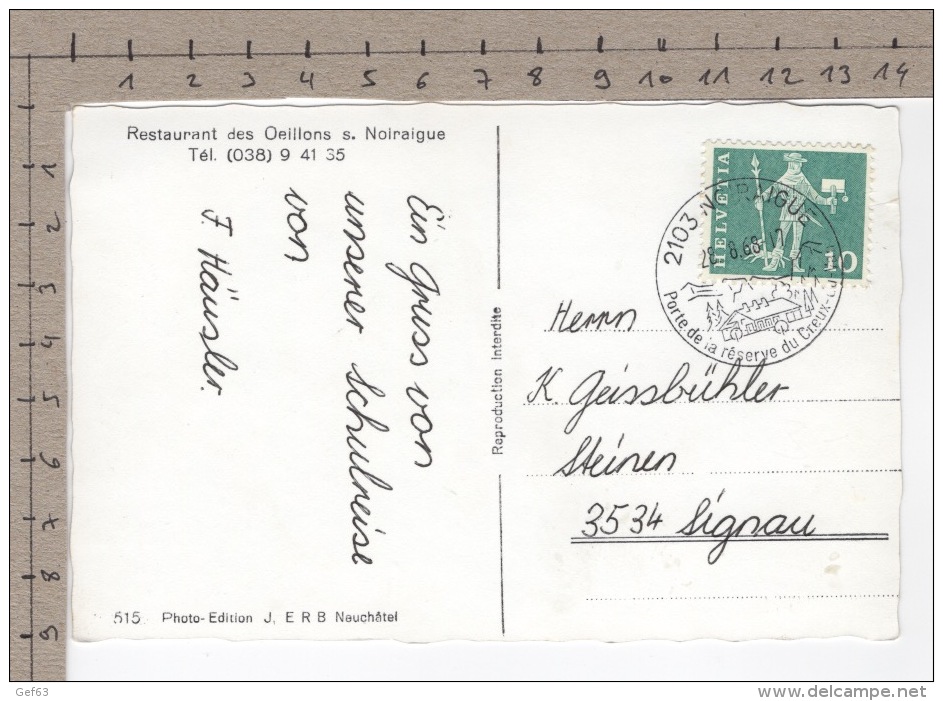 1 2 3 4 5 6 7 8 9 10 11 12 13 14
1
2
3
4
5
6
7
8
9
Restaurant des Oeillons s. Noiraigue
Tél. (038) 9 41 35
Ein Gruss von
unserer Schulreise
von
F. Häusler.
515 Photo-Edition J. ERB Neuchâtel
Reproduction interdite
HELVETIA
10
2103 NOIRAIGUE
28. 8.68-17
Porte de la réserve du Creux-du-
Herrn
K. Geissbühler
Steinen
3534 Signau
Gef63
www.delcampe.net